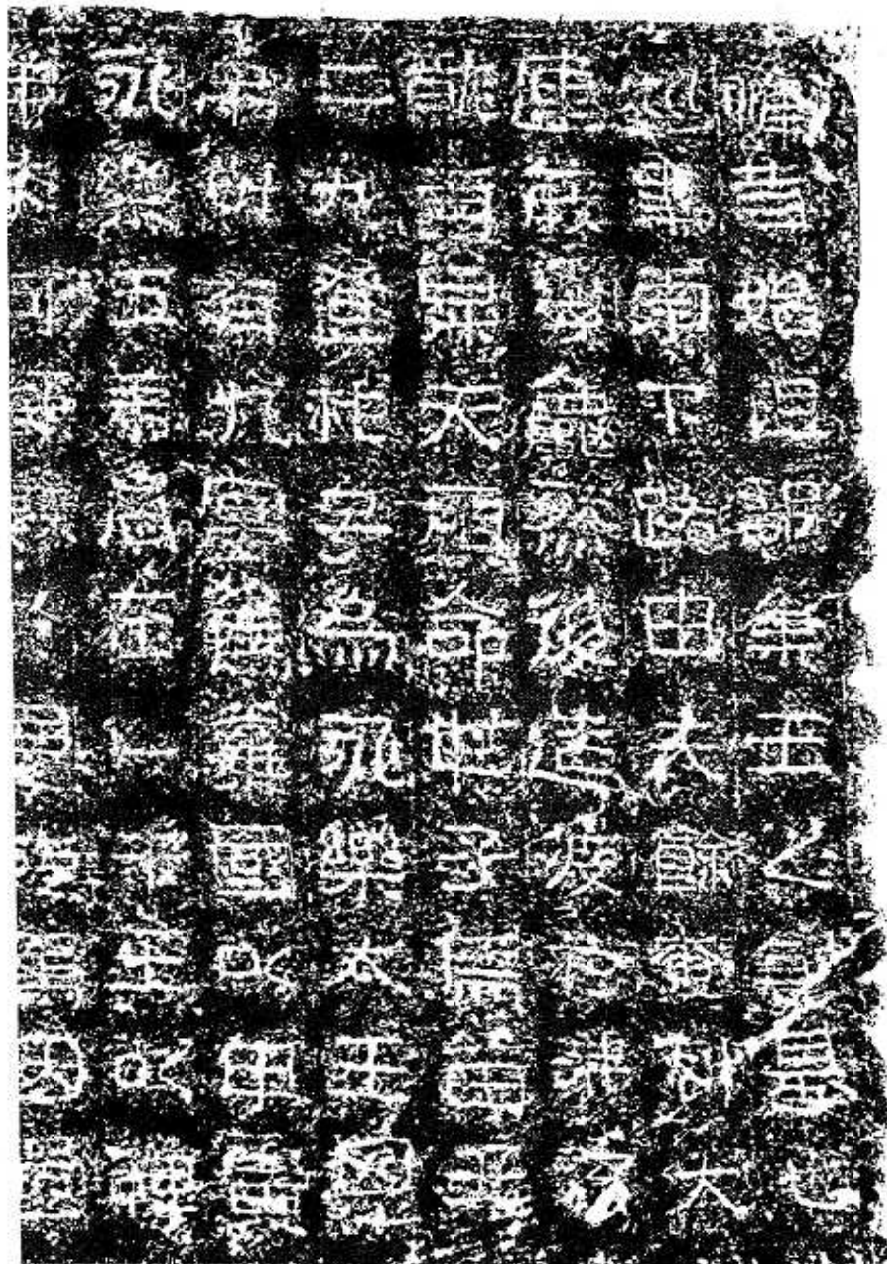 惟昔始祖鄒牟王之創基也
巡車南下路由夫餘奄利大
連葭浮龜然後造渡於沸流
龍首昇天顧命世子儒留王
二九登祚号為永樂太王恩
弔卅有九宴駕棄國以甲寅
永樂五年歲在乙未王以稗
羊不可稱數於是旋駕因過